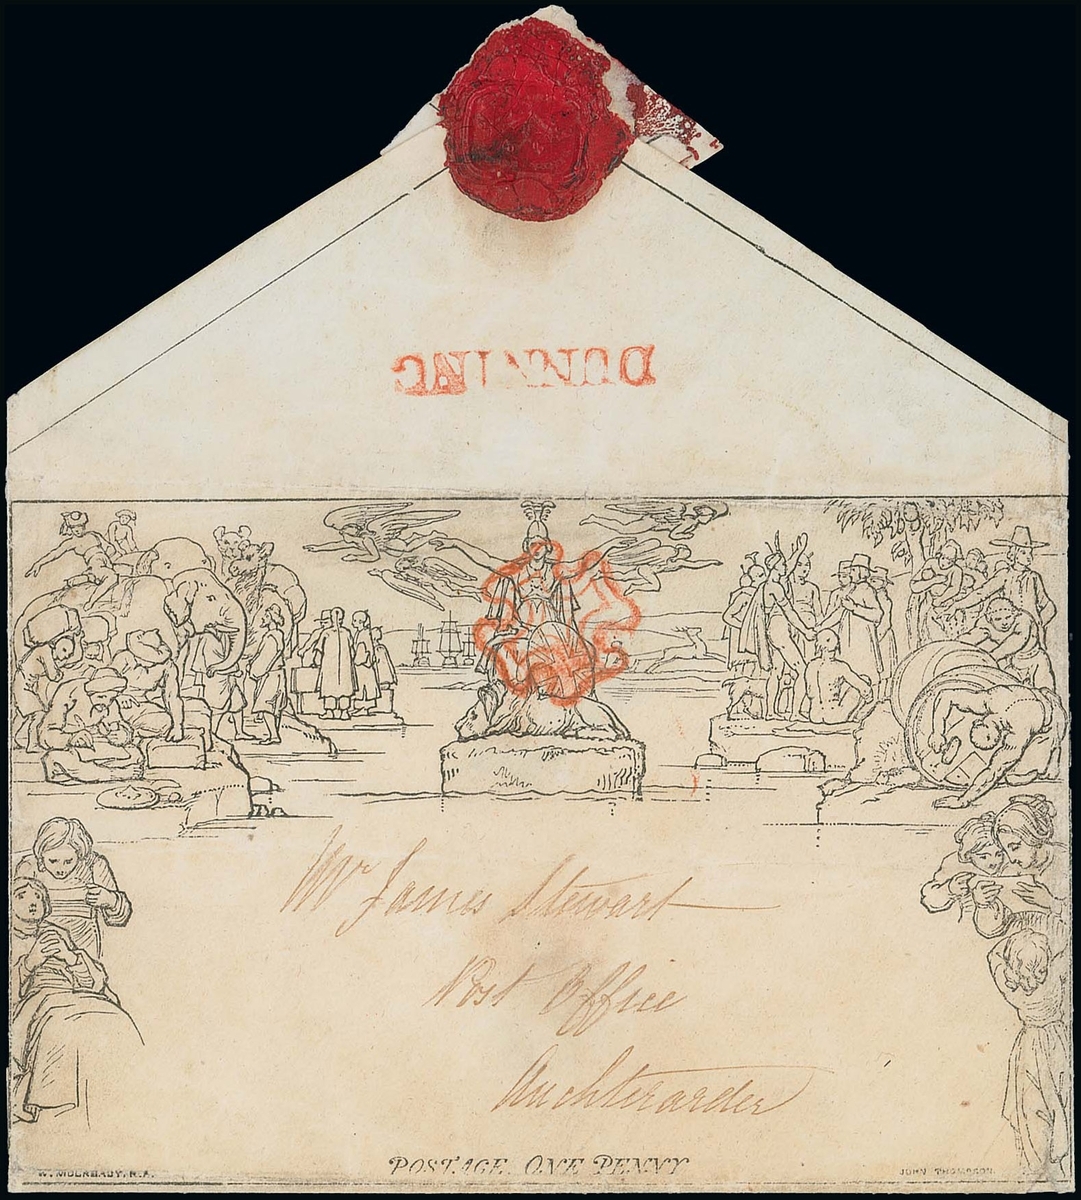 DUNNING
Mr James Stewart
Post Office
Auchterarder
POSTAGE ONE PENNY
W. MULREADY, R.A.
JOHN THOMPSON